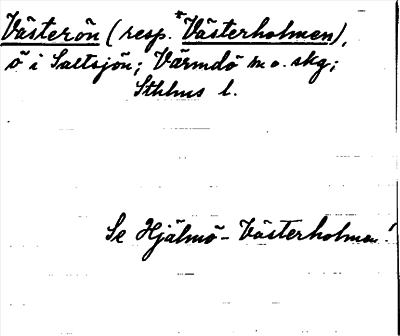 Västerön (resp. *Västerholmen),
ö i Saltsjön; Värmdö m o. skg;
Sthlms l.
Se Hjälmö-Västerholmen!